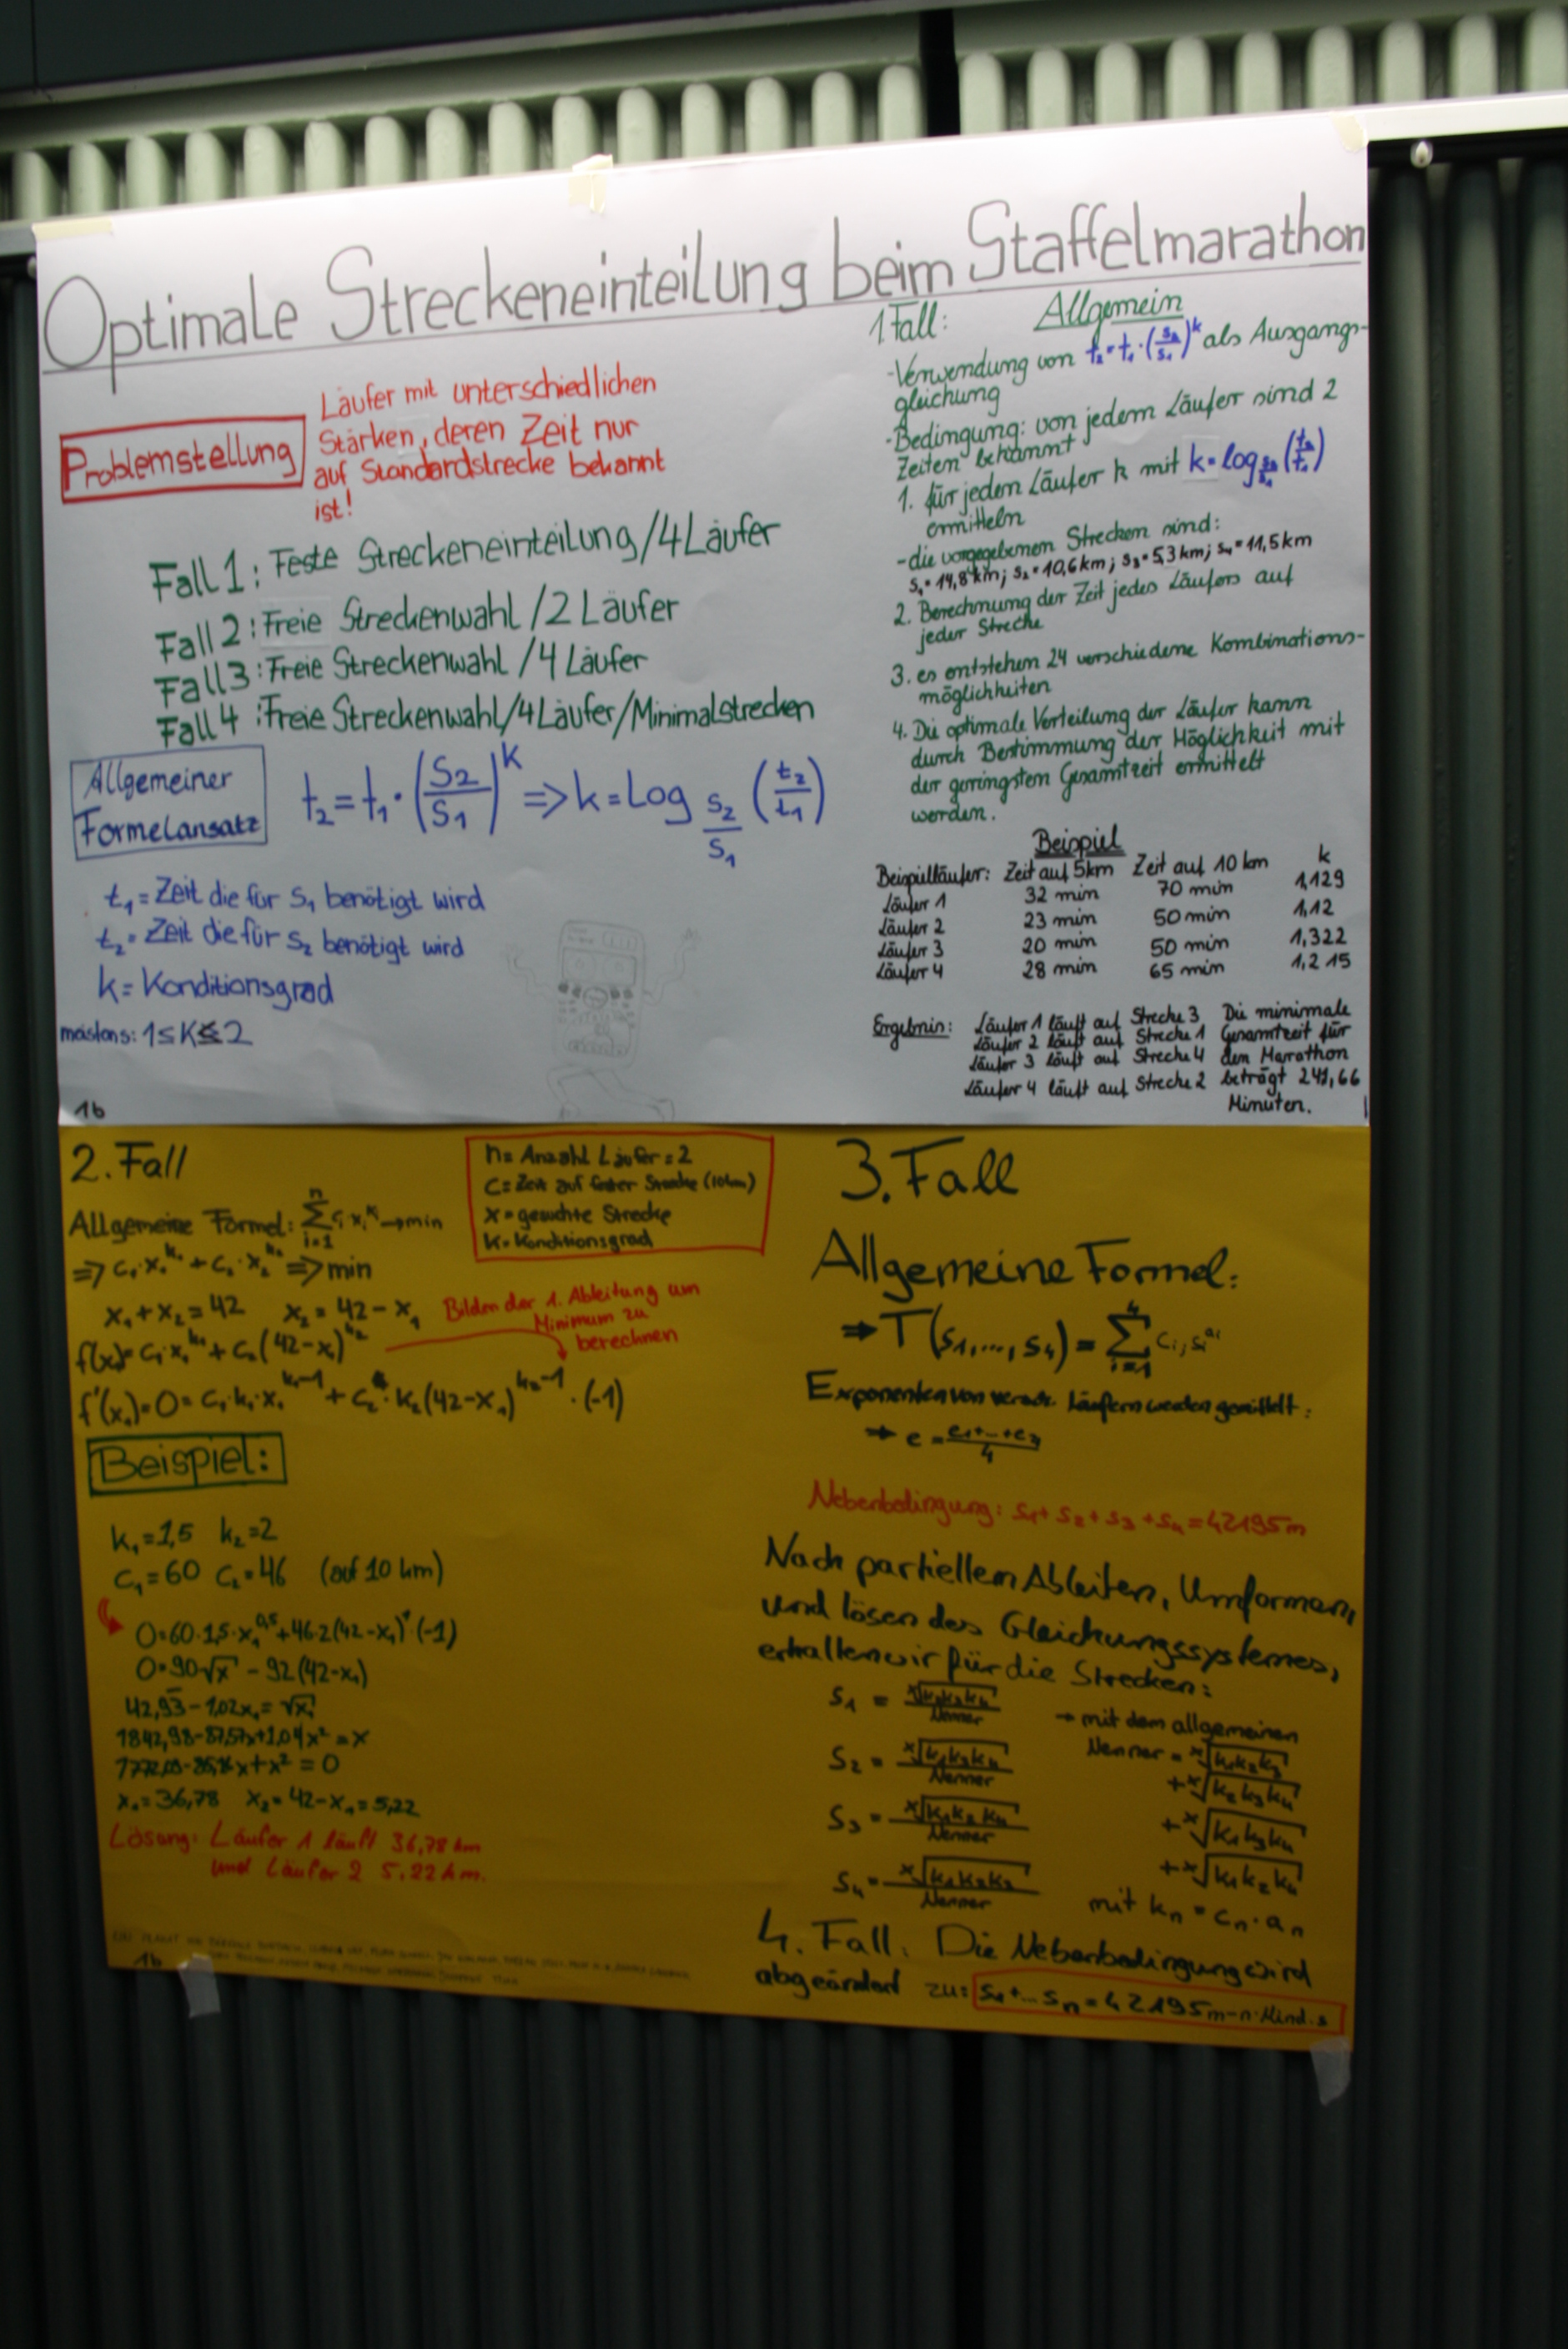 Optimale Streckeneinteilung beim Staffelmarathon
Problemstellung
Läufer mit unterschiedlichen
Stärken, deren Zeit nur
auf Standardstrecke bekannt
ist!
Fall 1: Feste Streckeneinteilung/4 Läufer
Fall 2: Freie Streckenwahl/2 Läufer
Fall 3: Freie Streckenwahl/4 Läufer
Fall 4: Freie Streckenwahl/4 Läufer/Minimalstrecken
Allgemeiner
Formelansatz
t₂ = t₁ · (s₂/s₁)^k => k = Log s₂/s₁ (t₂/t₁)
t₁ = Zeit die für s₁ benötigt wird
t₂ = Zeit die für s₂ benötigt wird
k = Konditionsgrad
meistens: 1 ≤ k ≤ 2
1b
1 Fall: Allgemein
-Verwendung von t₂ = t₁ · (s₂/s₁)^k als Ausgangs-
gleichung
-Bedingung: von jedem Läufer sind 2
Zeiten bekannt
1. für jeden Läufer k mit k = log s₂/s₁ (t₂/t₁)
ermitteln
-die vorgegebenen Strecken sind:
s₁ = 14,8 km; s₂ = 10,6 km; s₃ = 5,3 km; s₄ = 11,5 km
2. Berechnung der Zeit jedes Läufers auf
jeder Strecke
3. es entstehen 24 verschiedene Kombinations-
möglichkeiten
4. Die optimale Verteilung der Läufer kann
durch Bestimmung der Möglichkeit mit
der geringsten Gesamtzeit ermittelt
werden.
Beispiel
Beispielläufer: Zeit auf 5km Zeit auf 10 km k
Läufer 1 32 min 70 min 1,129
Läufer 2 23 min 50 min 1,12
Läufer 3 20 min 50 min 1,322
Läufer 4 28 min 65 min 1,215
Ergebnis: Läufer 1 läuft auf Strecke 3 Die minimale
Läufer 2 läuft auf Strecke 1 Gesamtzeit für
Läufer 3 läuft auf Strecke 4 den Marathon
Läufer 4 läuft auf Strecke 2 beträgt 241,66
Minuten.
2. Fall
n = Anzahl Läufer = 2
c = Zeit auf fester Strecke (10km)
x = gesuchte Strecke
k = Konditionsgrad
Allgemeine Formel: Σ_{i=1}^{n} cᵢ·xᵢ^kᵢ → min
=> c₁·x₁^k₁ + c₂·x₂^k₂ => min
x₁ + x₂ = 42 x₂ = 42 - x₁
Bilden der 1. Ableitung um
Minimum zu
berechnen
f(x) = c₁·x₁^k₁ + c₂(42-x₁)^k₂
f'(x₁) = 0 = c₁·k₁·x₁^(k₁-1) + c₂·k₂(42-x₁)^(k₂-1) · (-1)
Beispiel:
k₁ = 1,5 k₂ = 2
c₁ = 60 c₂ = 46 (auf 10 km)
0 = 60·1,5·x₁^0,5 + 46·2(42-x₁)¹·(-1)
0 = 90√x - 92(42-x₁)
42,93 - 1,02x₁ = √x₁
1842,98 - 87,57x + 1,04x² = x
x² = 0
x₁ = 36,78 x₂ = 42 - x₁ = 5,22
Lösung: Läufer 1 läuft 36,78 km
und Läufer 2 5,22 km.
1b
3. Fall
Allgemeine Formel:
⇒ T(s₁,...,s₄) = Σ_{i=1}^{4} cᵢ, sᵢ^aᵢ
Exponenten von versch. Läufern werden gemittelt:
→ e = (e₁+...+e₄)/4
Nebenbedingung: s₁ + s₂ + s₃ + s₄ = 42195m
Nach partiellem Ableiten, Umformen,
und lösen des Gleichungssystemes,
erhalten wir für die Strecken:
s₁ = ˣ√(k₂k₃k₄)/Nenner
→ mit dem allgemeinen
Nenner = ˣ√(k₁k₂k₃)
s₂ = ˣ√(k₁k₃k₄)/Nenner
+ ˣ√(k₂k₃k₄)
s₃ = ˣ√(k₁k₂k₄)/Nenner
+ ˣ√(k₁k₃k₄)
s₄ = ˣ√(k₁k₂k₃)/Nenner
+ ˣ√(k₁k₂k₄)
mit kₙ = cₙ · aₙ
4. Fall: Die Nebenbedingung wird
abgeändert zu: s₁+...sₙ = 42195m-n·Mind.s